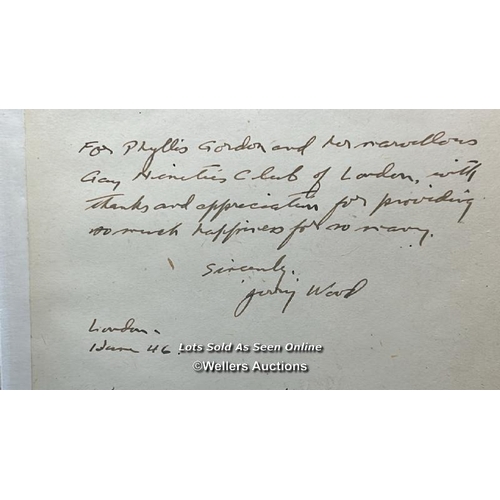 For Phyllis Gordon and her marvellous
Gay Nineties Club of London, with
thanks and appreciation for providing
so much happiness for so many.
Sincerely.
Wood
London.
46.
Lots Sold As Seen Online
©Wellers Auctions